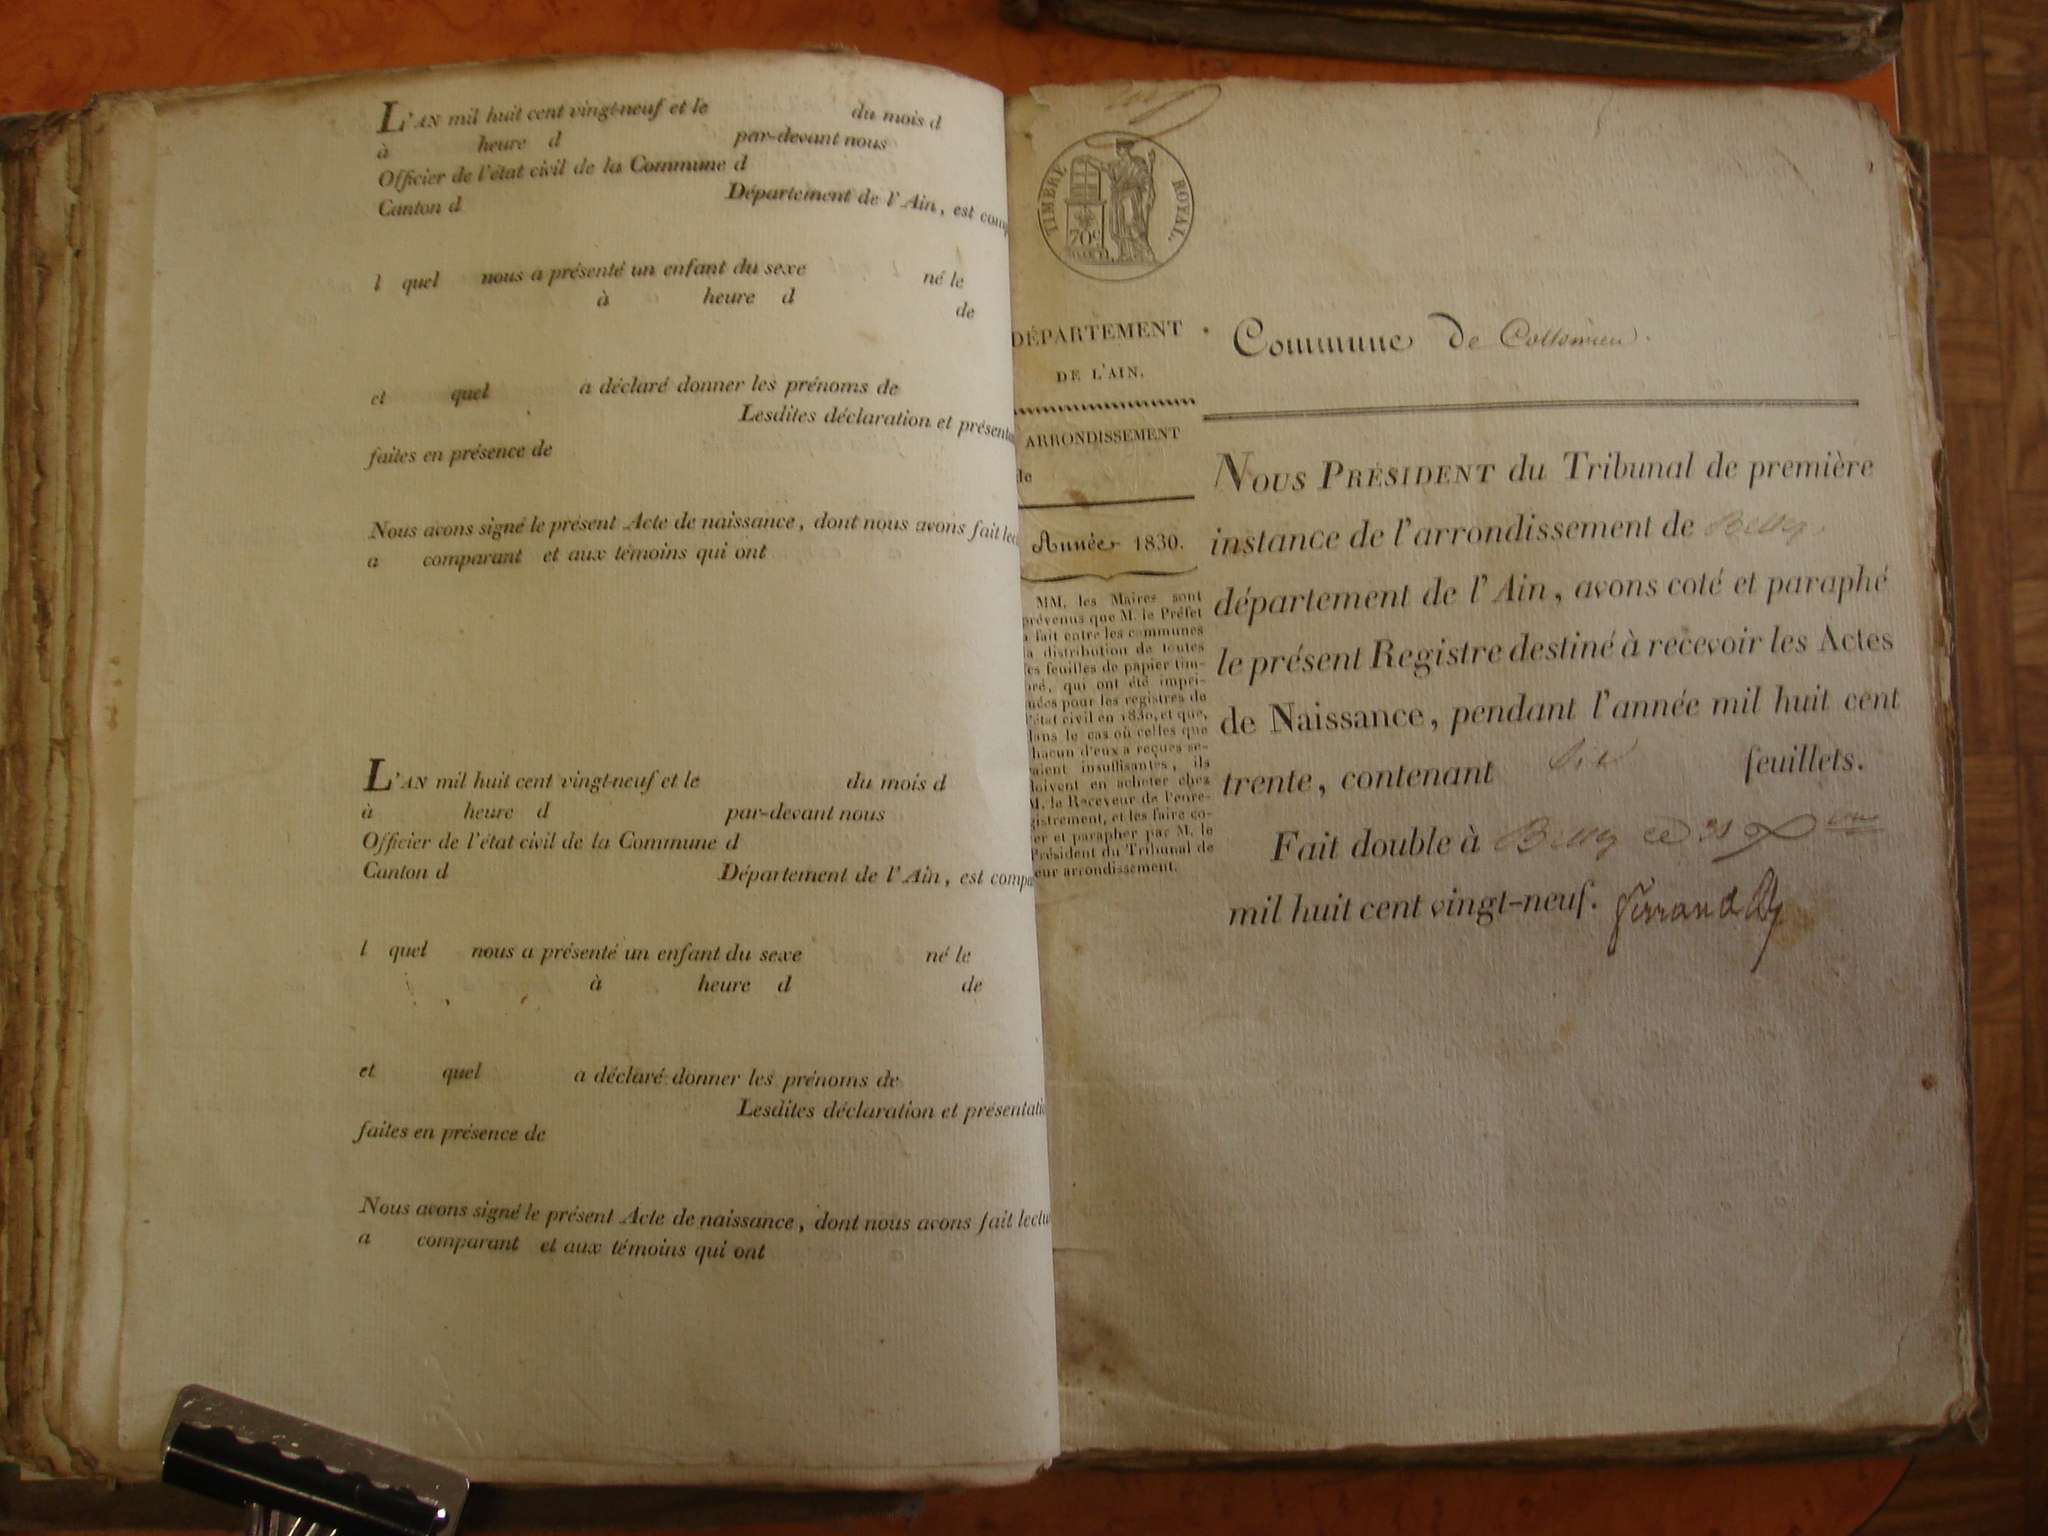 L'AN mil huit cent vingt-neuf et le du mois d
à heure d par-devant nous
Officier de l'état civil de la Commune d
Canton d Département de l'Ain, est comp
l quel nous a présenté un enfant du sexe né le
à heure d de
et quel a déclaré donner les prénoms de
Lesdites déclaration et présenta
faites en présence de
Nous avons signé le présent Acte de naissance, dont nous avons fait lec
a comparant et aux témoins qui ont
L'AN mil huit cent vingt-neuf et le du mois d
à heure d par-devant nous
Officier de l'état civil de la Commune d
Canton d Département de l'Ain, est compa
l quel nous a présenté un enfant du sexe né le
à heure d de
et quel a déclaré donner les prénoms de
Lesdites déclaration et présentatio
faites en présence de
Nous avons signé le présent Acte de naissance, dont nous avons fait lectu
a comparant et aux témoins qui ont
TIMBRE ROYAL.
70c
DÉPARTEMENT
DE L'AIN.
ARRONDISSEMENT
de
Année 1830.
MM. les Maires sont
prévenus que M. le Préfet
a fait entre les communes
la distribution de toutes
les feuilles de papier tim-
bré, qui ont été impri-
mées pour les registres de
l'état civil en 1830, et que,
dans le cas où celles que
chacun d'eux a reçues se-
raient insuffisantes, ils
doivent en acheter chez
M. le Receveur de l'enre-
gistrement, et les faire co-
ter et parapher par M. le
Président du Tribunal de
leur arrondissement.
Commune de Collomieu.
NOUS PRÉSIDENT du Tribunal de première
instance de l'arrondissement de Belley
département de l'Ain, avons coté et paraphé
le présent Registre destiné à recevoir les Actes
de Naissance, pendant l'année mil huit cent
trente, contenant six feuillets.
Fait double à Belley ce 31 Xbre
mil huit cent vingt-neuf.